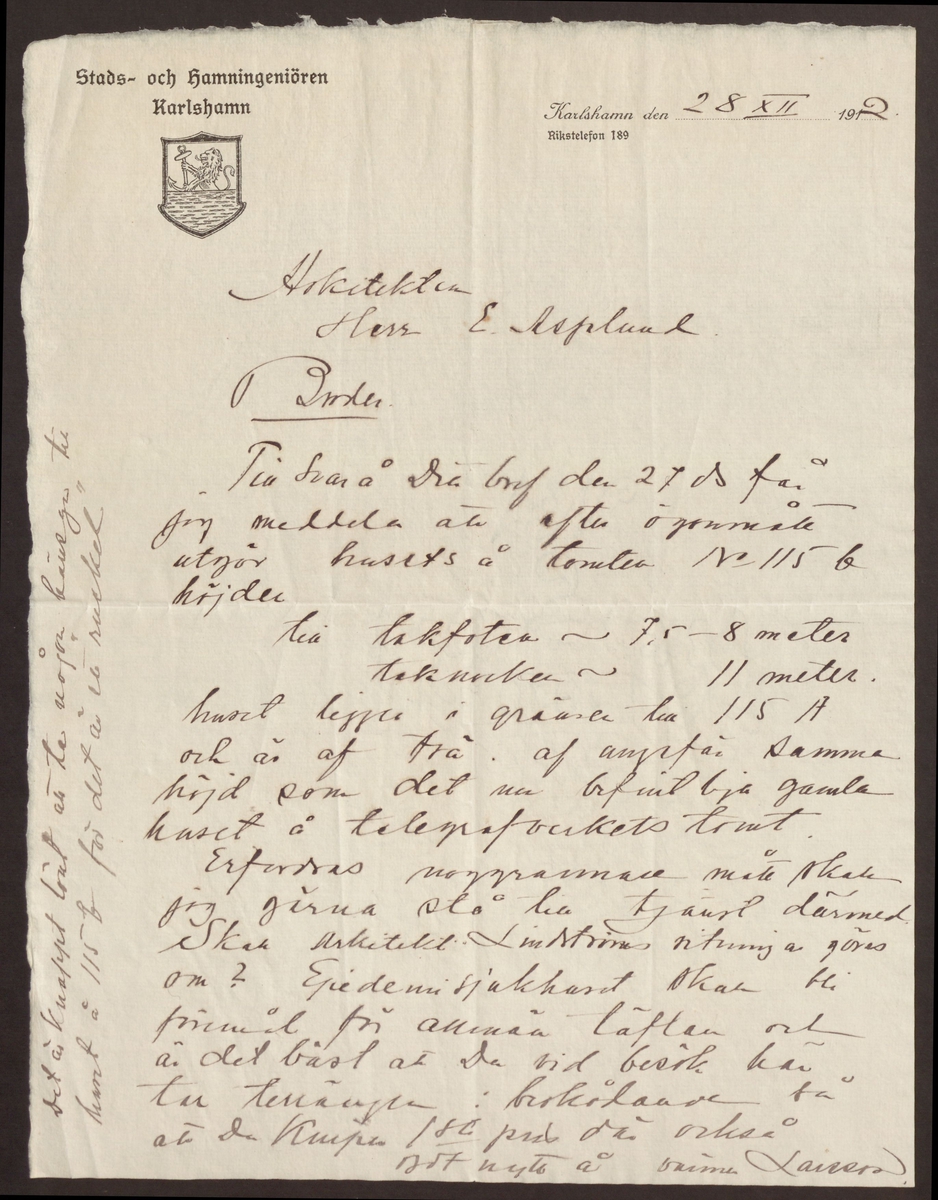 Stads- och Hamningeniören
Karlshamn
Karlshamn den 28 XII 1912.
Rikstelefon 189
Arkitekten
Herr E. Asplund.
Broder.
Till svar å Ditt bref den 27 ds får
jag meddela att efter ögonmått
utgör husets å tomten No 115 b
höjder
till takfoten ~ 7,5 – 8 meter
taknocken ~ 11 meter.
huset ligger i gränsen till 115 A
och är af trä. af ungefär samma
höjd som det nu befintliga gamla
huset å telegrafverkets tomt.
Erfordras noggrannare mått skall
jag gärna stå till tjänst därmed.
Skall Arkitekt Lindströms ritningar göras
om? Epidemisjukhuset skall bli
föremål för allmän täflan och
är det bäst att Du vid besök här
tar terrängen i beskådande så
att Du kniper 1sta pris där också
Godt nytt å vännen Larsson.
Det är knappt lönt att ta någon hänsyn till
huset å 115 b för det är ett ruckel"